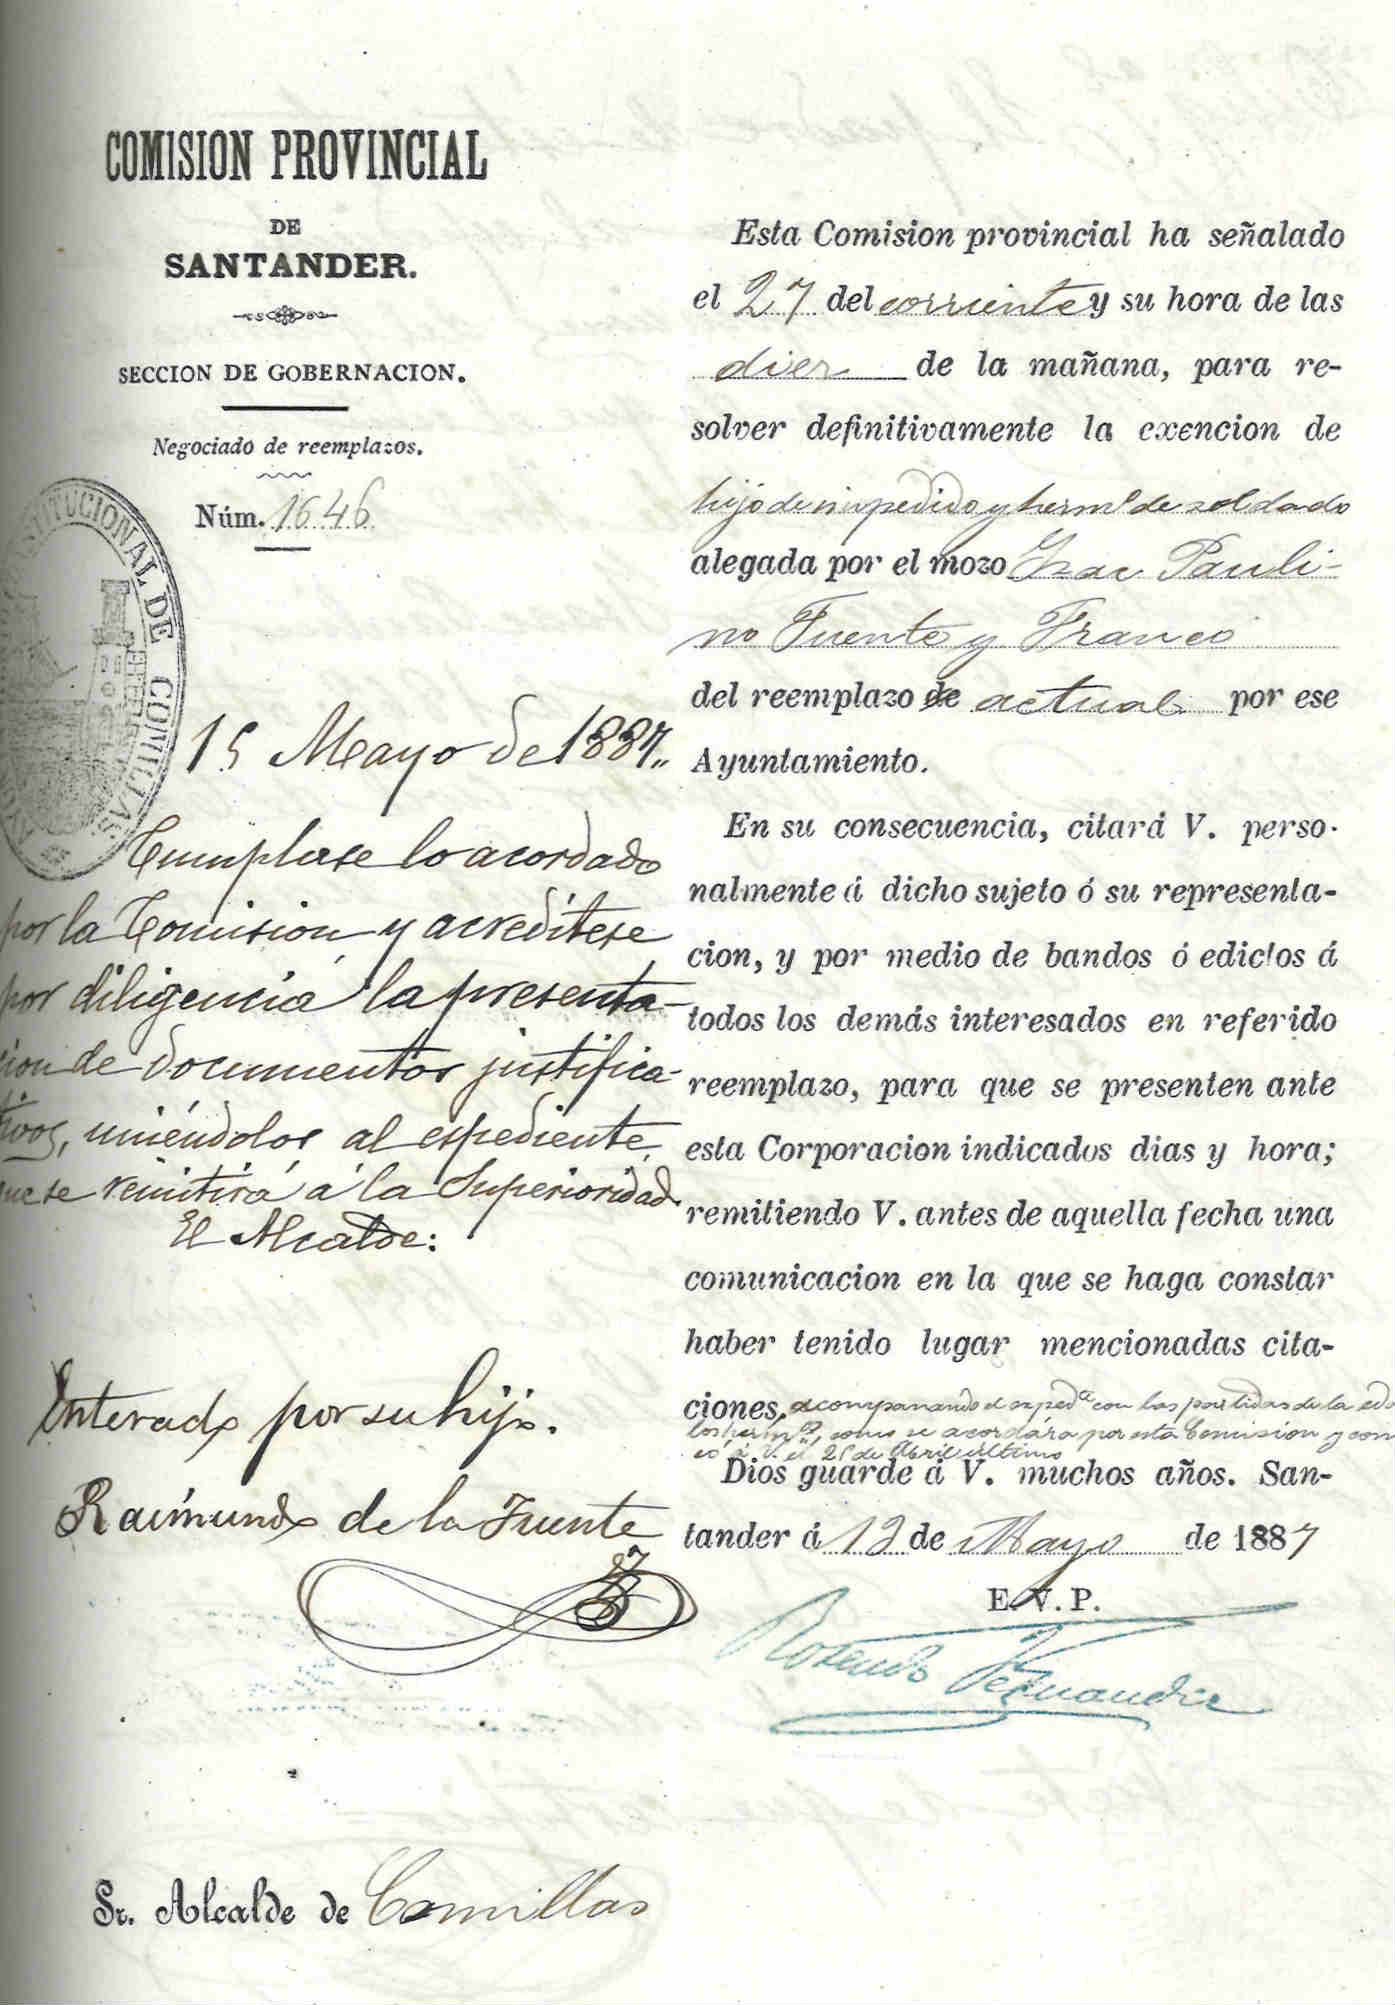 COMISION PROVINCIAL
DE
SANTANDER.
SECCION DE GOBERNACION.
Negociado de reemplazos.
Núm. 1646
CONSTITUCIONAL DE COMILLAS
15 Mayo de 1887.,
Cumplase lo acordado
por la Comision y acredítese
por diligencia la presenta-
cion de documentos justifica-
tivos, uniéndolos al espediente
que se remitirá á la Superioridad.
El Alcalde:
Enterado por su hijo.
Raimundo de la Fuente
Sr. Alcalde de Comillas
Esta Comision provincial ha señalado
el 27 del corriente y su hora de las
diez de la mañana, para re-
solver definitivamente la exencion de
hijo de impedido y hermº de soldado
alegada por el mozo Isac Pauli-
no Fuente y Franco
del reemplazo de actual por ese
Ayuntamiento.
En su consecuencia, citará V. perso-
nalmente á dicho sujeto ó su representa-
cion, y por medio de bandos ó edictos á
todos los demás interesados en referido
reemplazo, para que se presenten ante
esta Corporacion indicados dias y hora;
remitiendo V. antes de aquella fecha una
comunicacion en la que se haga constar
haber tenido lugar mencionadas cita-
ciones, acompañando el con las partidas de la
como se acordára por esta Comision y
á V. el de Abril último
Dios guarde á V. muchos años. San-
tander á 12 de Mayo de 1887
E. V. P.
Rosendo Fernandez